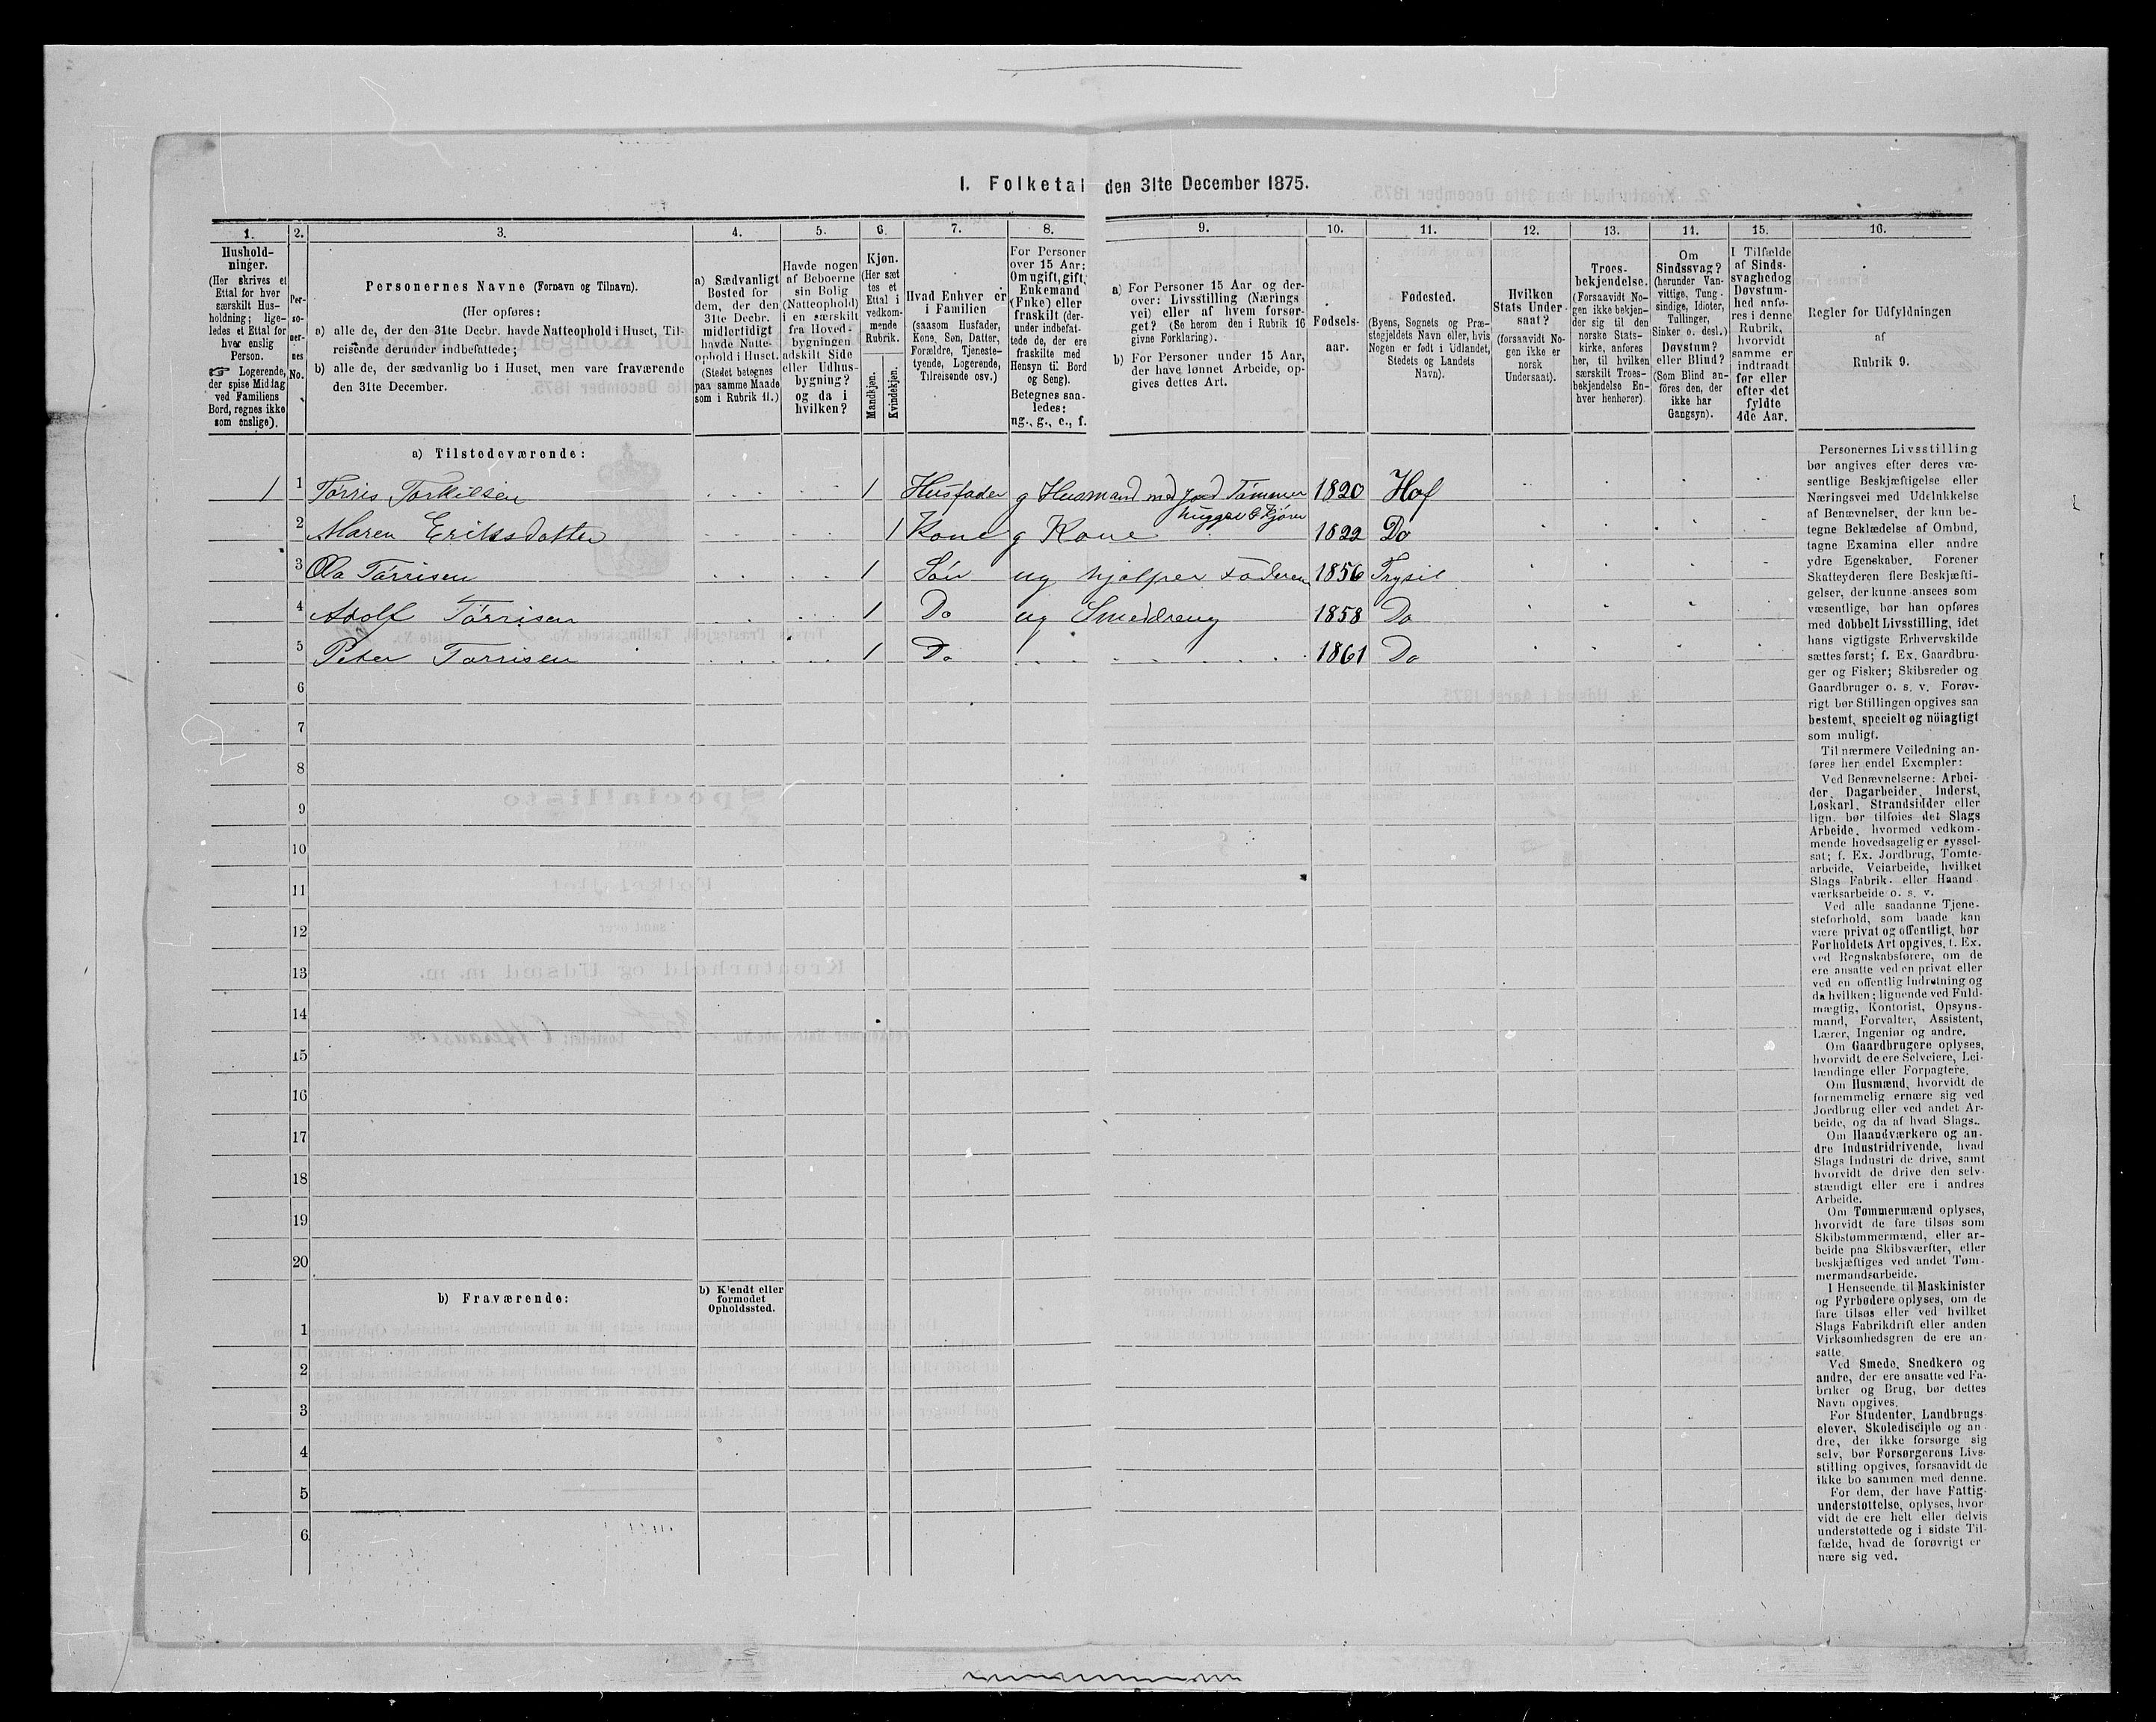 1. Folketal den 31te December 1875.
1. 2. 3. 4. 5. 6. 7. 8. 9. 10. 11. 12. 13. 14. 15. 16.
Hushold-
ninger.
(Her skrives et
Ettal for hver
særskilt Hus-
holdning; lige-
ledes et Ettal for
hver enslig
Person.
☞ Logerende,
der spise Middag
ved Familiens
Bord, regnes ikke
som enslige).
Per-
so-
ner-
nes
No.
Personernes Navne (Fornavn og Tilnavn).
(Her opføres:
a) alle de, der den 31te Decbr. havde Natteophold i Huset, Til-
reisende derunder indbefattede;
b) alle de, der sædvanlig bo i Huset, men vare fraværende
den 31te December.
a) Sædvanligt
Bosted for
dem, der den
31te Decbr.
midlertidigt
havde Natte-
ophold i Huset.
(Stedet betegnes
paa samme Maade
som i Rubrik 11.)
Havde nogen
af Beboerne
sin Bolig
(Natteophold)
i en særskilt
fra Hoved-
bygningen
adskilt Side
eller Udhus-
bygning?
og da i
hvilken?
Kjøn.
(Her sæt
tes et
Ettal i
vedkom-
mende
Rubrik.
Mandkjøn.
Kvindekjøn.
Hvad Enhver er
i Familien
(saasom Husfader,
Kone, Søn, Datter,
Forældre, Tjeneste-
tyende, Logerende,
Tilreisende osv.)
For Personer
over 15 Aar:
Om ugift, gift,
Enkemand
(Enke) eller
fraskilt (der-
under indbefat-
tede de, der ere
fraskilte med
Hensyn til Bord
og Seng).
Betegnes saa-
ledes:
ug., g., e., f.
a) For Personer 15 Aar og der-
over: Livsstilling (Nærings
vei) eller af hvem forsør-
get? (Se herom den i Rubrik 16
givne Forklaring).
b) For Personer under 15 Aar,
der have lønnet Arbeide, op-
gives dettes Art.
Fødsels-
aar.
Fødested.
(Byens, Sognets og Præ-
stegjeldets Navn eller, hvis
Nogen er født i Udlandet,
Stedets og Landets
Navn).
Hvilken
Stats Under-
saat?
(forsaavidt No-
gen ikke er
norsk
Undersaat).
Troes-
bekjendelse.
(Forsaavidt No-
gen ikke bekjen-
der sig til den
norske Stats-
kirke, anføres
her, til hvilken
særskilt Troes-
bekjendelse En-
hver henhører).
Om
Sindssvag?
(herunder Van-
vittige, Tung-
sindige, Idioter,
Tullinger,
Sinker o. desl.)
Døvstum?
eller Blind?
(Som Blind an-
føres den, der
ikke har
Gangsyn).
I Tilfælde
af Sinds-
svaghed og
Døvstum-
hed anfø-
res i denne
Rubrik,
hvorvidt
samme er
indtraadt
før eller
efter det
fyldte
4de Aar.
Regler for Udfyldningen
af
Rubrik 9.
a) Tilstedeværende:
1 1 Tørris Torkilsen 1 Husfader g Husmand med Jord Tømmer 1820 Hof
hugger & Kjører
2 Maren Eriksdatter 1 Kone g Kone 1822 Do
3 Ola Tørrisen 1 Søn ug hjelper Faderen 1856 Trysil
4 Adolf Tørrisen 1 Do ug Smeddreng 1858 Do
5 Peter Tørrisen 1 Do 1861 Do
6
7
8
9
10
11
12
13
14
15
16
17
18
19
20
b) Fraværende:
b) Kjendt eller
formodet
Opholdssted.
1
2
3
4
5
6
Personernes Livsstilling
bør angives efter deres væ-
sentlige Beskjæftigelse eller
Næringsvei med Udelukkelse
af Benævnelser, der kun be-
tegne Beklædelse af Ombud,
tagne Examina eller andre
ydre Egenskaber. Forener
Skatteyderen flere Beskjæfti-
gelser, der kunne ansees som
væsentlige, bør han opføres
med dobbelt Livsstilling, idet
hans vigtigste Erhvervskilde
sættes først; f. Ex. Gaardbru-
ger og Fisker; Skibsreder og
Gaardbruger o. s. v. Forøv-
rigt bør Stillingen opgives saa
bestemt, specielt og nöiagtigt
som muligt.
Til nærmere Veiledning an-
føres her endel Exempler:
Ved Benævnelserne: Arbei-
der, Dagarbeider, Inderst,
Løskarl, Strandsidder eller
lign. bør tilføies det Slags
Arbeide, hvormed vedkom-
mende hovedsagelig er syssel-
sat; f. Ex. Jordbrug, Tomte-
arbeide, Veiarbeide, hvilket
Slags Fabrik- eller Haand-
værksarbeide o. s. v.
Ved alle saadanne Tjene-
steforhold, som baade kan
være privat og offentligt, bør
Forholdets Art opgives, f. Ex.
ved Regnskabsførere, om de
ere ansatte ved en privat eller
ved en offentlig Indretning og
da hvilken; lignende ved Fuld-
mægtig, Kontorist, Opsyns-
mand, Forvalter, Assistent,
Lærer, Ingeniør og andre.
Om Gaardbrugere oplyses,
hvorvidt de ere Selveiere, Lei-
lændinge eller Forpagtere.
Om Husmænd, hvorvidt de
fornemmelig ernære sig ved
Jordbrug eller ved andet Ar-
beide, og da af hvad Slags.
Om Haandværkere og an-
dre Industridrivende, hvad
Slags Industri de drive, samt
hvorvidt de drive den selv-
stændigt eller ere i andres
Arbeide.
Om Tømmermænd oplyses,
hvorvidt de fare tilsøs som
Skibstømmermænd, eller ar-
beide paa Skibsværfter, eller
beskjæftiges ved andet Tøm-
mermandsarbeide.
I Henseende til Maskinister
og Fyrbødere oplyses, om de
fare tilsøs eller ved hvilket
Slags Fabrikdrift eller anden
Virksomhedsgren de ere an-
satte.
Ved Smede, Snedkere og
andre, der ere ansatte ved Fa-
briker og Brug, bør dettes
Navn opgives.
For Studenter, Landbrugs-
elever, Skoledisciple og an-
dre, der ikke forsørge sig
selv, bør Forsørgerens Livs-
stilling opgives, forsaavidt de
ikke bo sammen med denne.
For dem, der have Fattig-
understøttelse, oplyses, hvor
vidt de ere helt eller delvis
understøttede og i sidste Til-
fælde, hvad de forøvrigt er
nære sig ved.